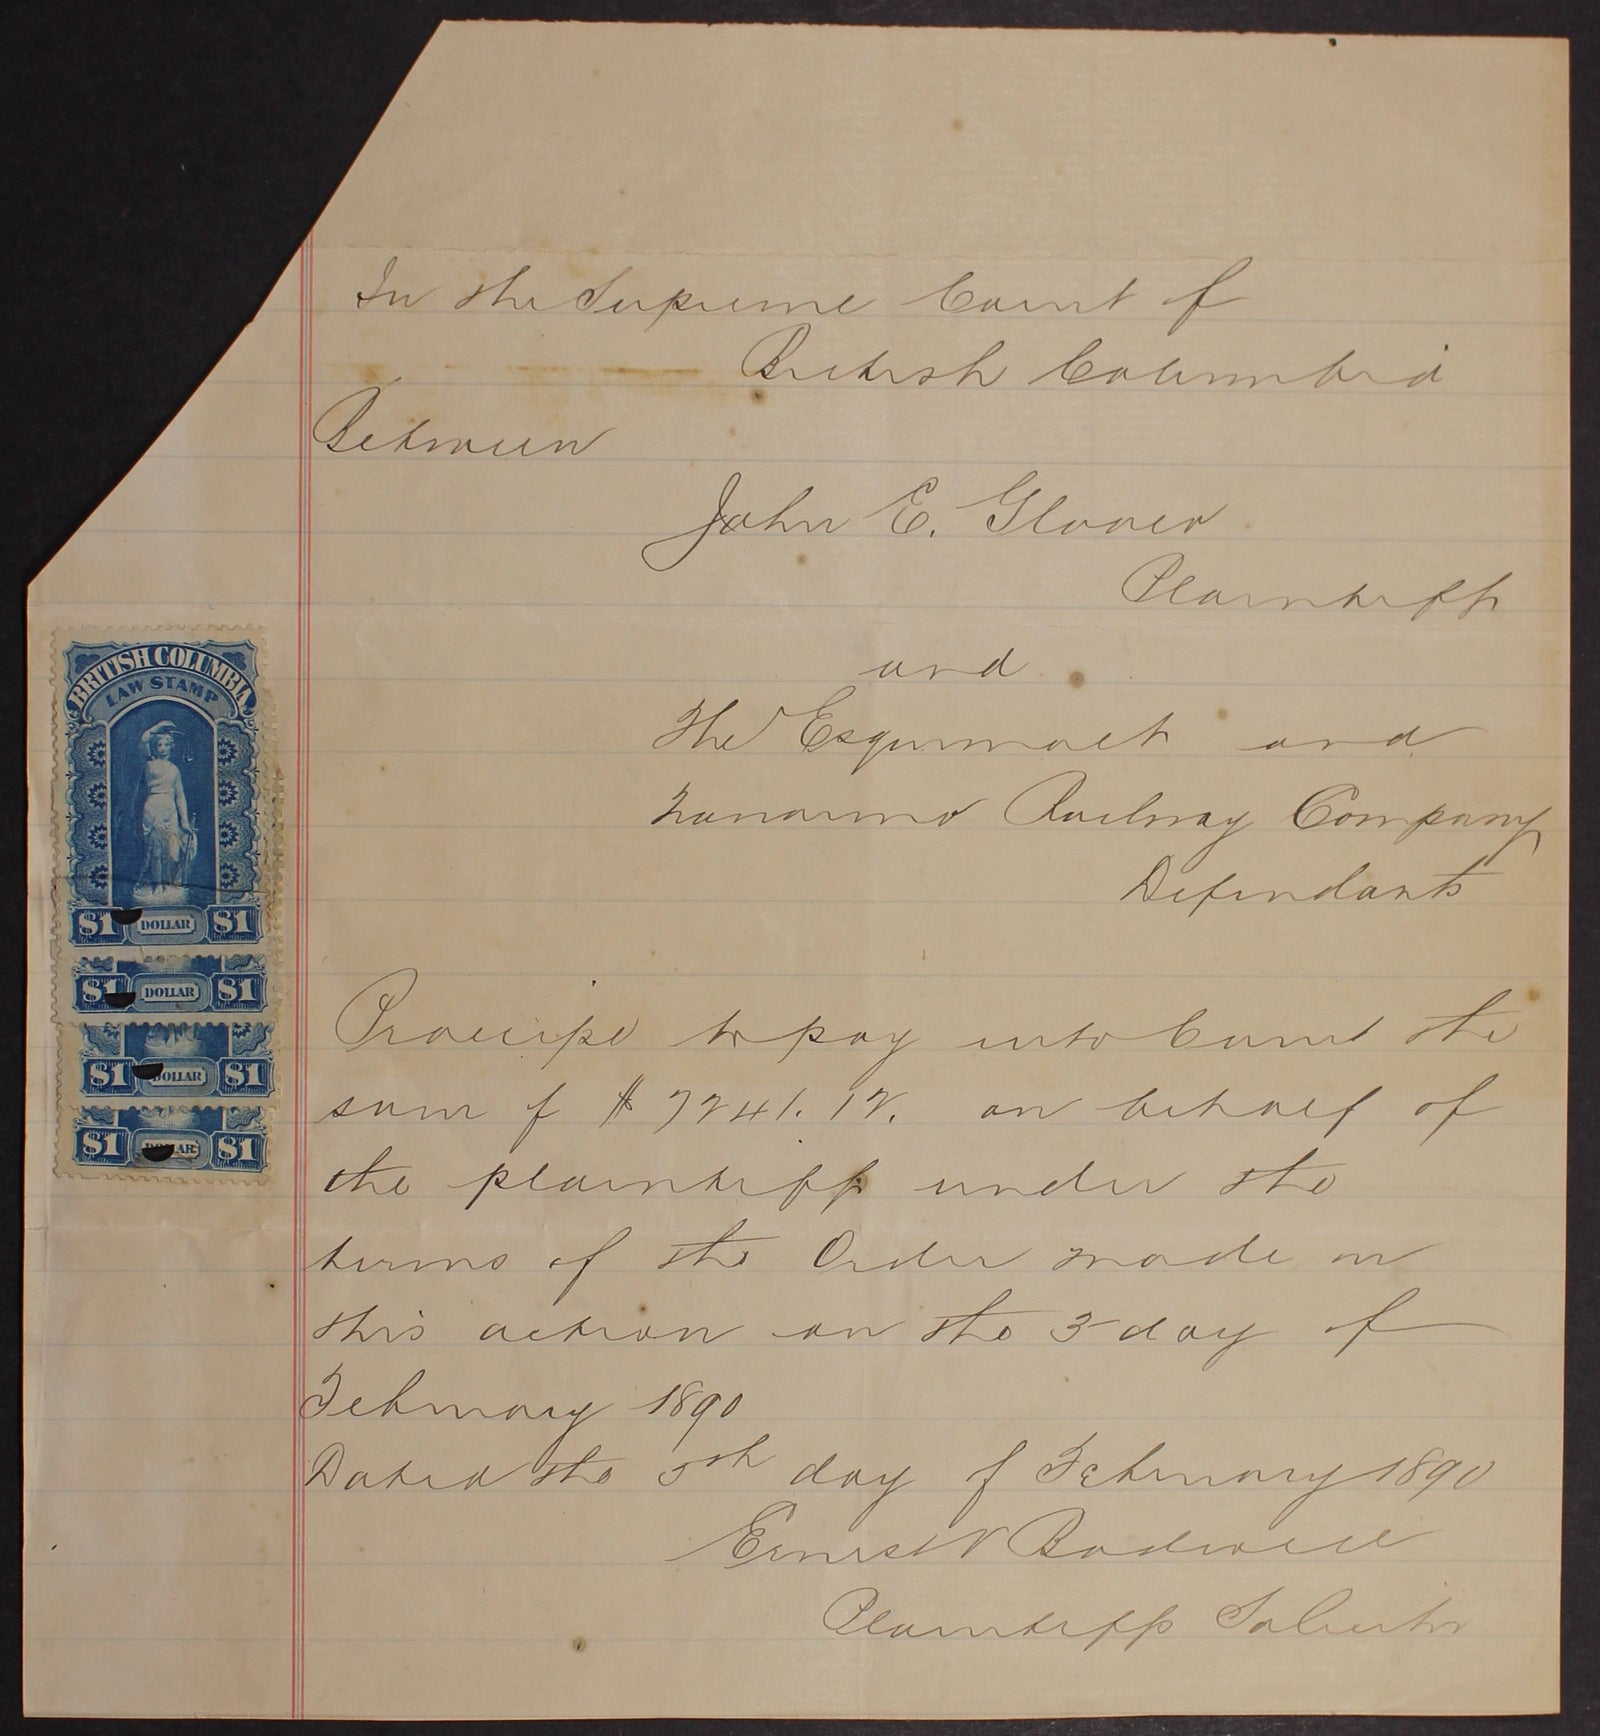 In the Supreme Court of
British Columbia
Between
John E. Glover
Plaintiff
and
The Esquimalt and
Nanaimo Railway Company
Defendants
BRITISH COLUMBIA
LAW STAMP
$1 DOLLAR $1
$1 DOLLAR $1
$1 DOLLAR $1
$1 DOLLAR $1
Praecipe to pay into Court the
sum of $7241.12. on behalf of
the plaintiff under the
terms of the Order made in
this action on the 3 day of
February 1890
Dated the 5th day of February 1890
Ernest V Bodwell
Plaintiffs Solicitor